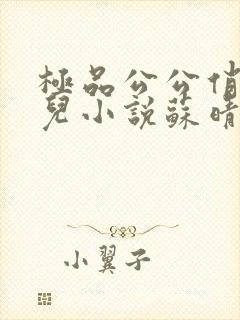 極品公公俏
兒小說蘇晴
小翼子